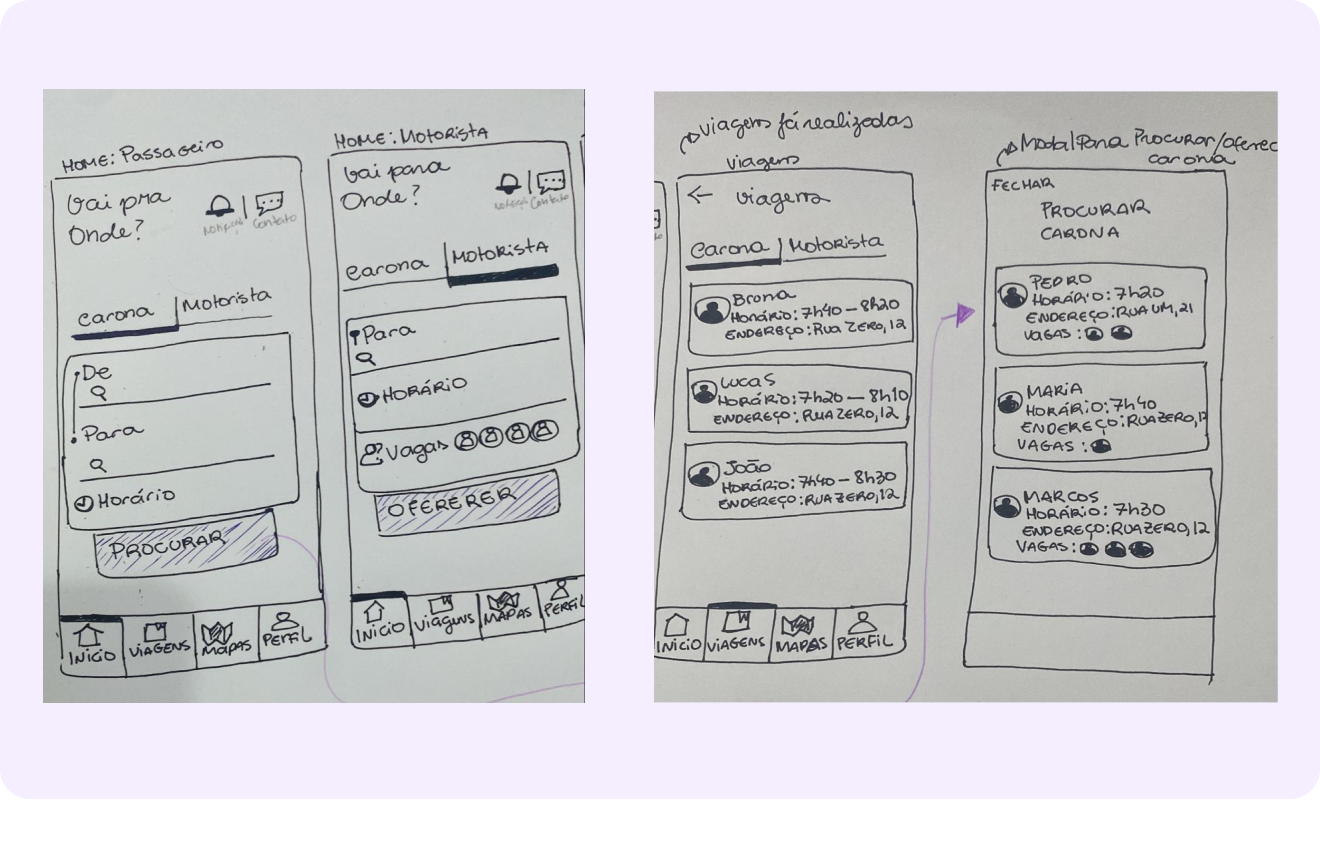 HOME: Passageiro
Vai pra
Onde?
Notificações
Contato
Carona
Motorista
De
Para
Horário
PROCURAR
INICIO
VIAGENS
MAPAS
PERFIL
HOME: MOTORISTA
Vai para
Onde?
Contato
Carona
MOTORISTA
Para
HORÁRIO
Vagas
OFERERER
INICIO
Viagens
MAPAS
PERFIL
Viagens já realizadas
Viagens
← Viagens
Carona
Motorista
Bruna
HORÁRIO: 7h40 – 8h20
ENDEREÇO: RUA ZERO, 12
Lucas
HORÁRIO: 7h20 – 8h10
ENDEREÇO: RUA ZERO, 12
João
HORÁRIO: 7h40 – 8h30
ENDEREÇO: RUA ZERO, 12
INICIO
VIAGENS
MAPAS
PERFIL
Modal Para Procurar/oferec
carona
FECHAR
PROCURAR
CARONA
PEDRO
HORÁRIO: 7h20
ENDEREÇO: RUA UM, 21
VAGAS:
MARIA
HORÁRIO: 7h40
ENDEREÇO: RUA ZERO, 12
VAGAS:
MARCOS
HORÁRIO: 7h30
ENDEREÇO: RUA ZERO, 12
VAGAS: